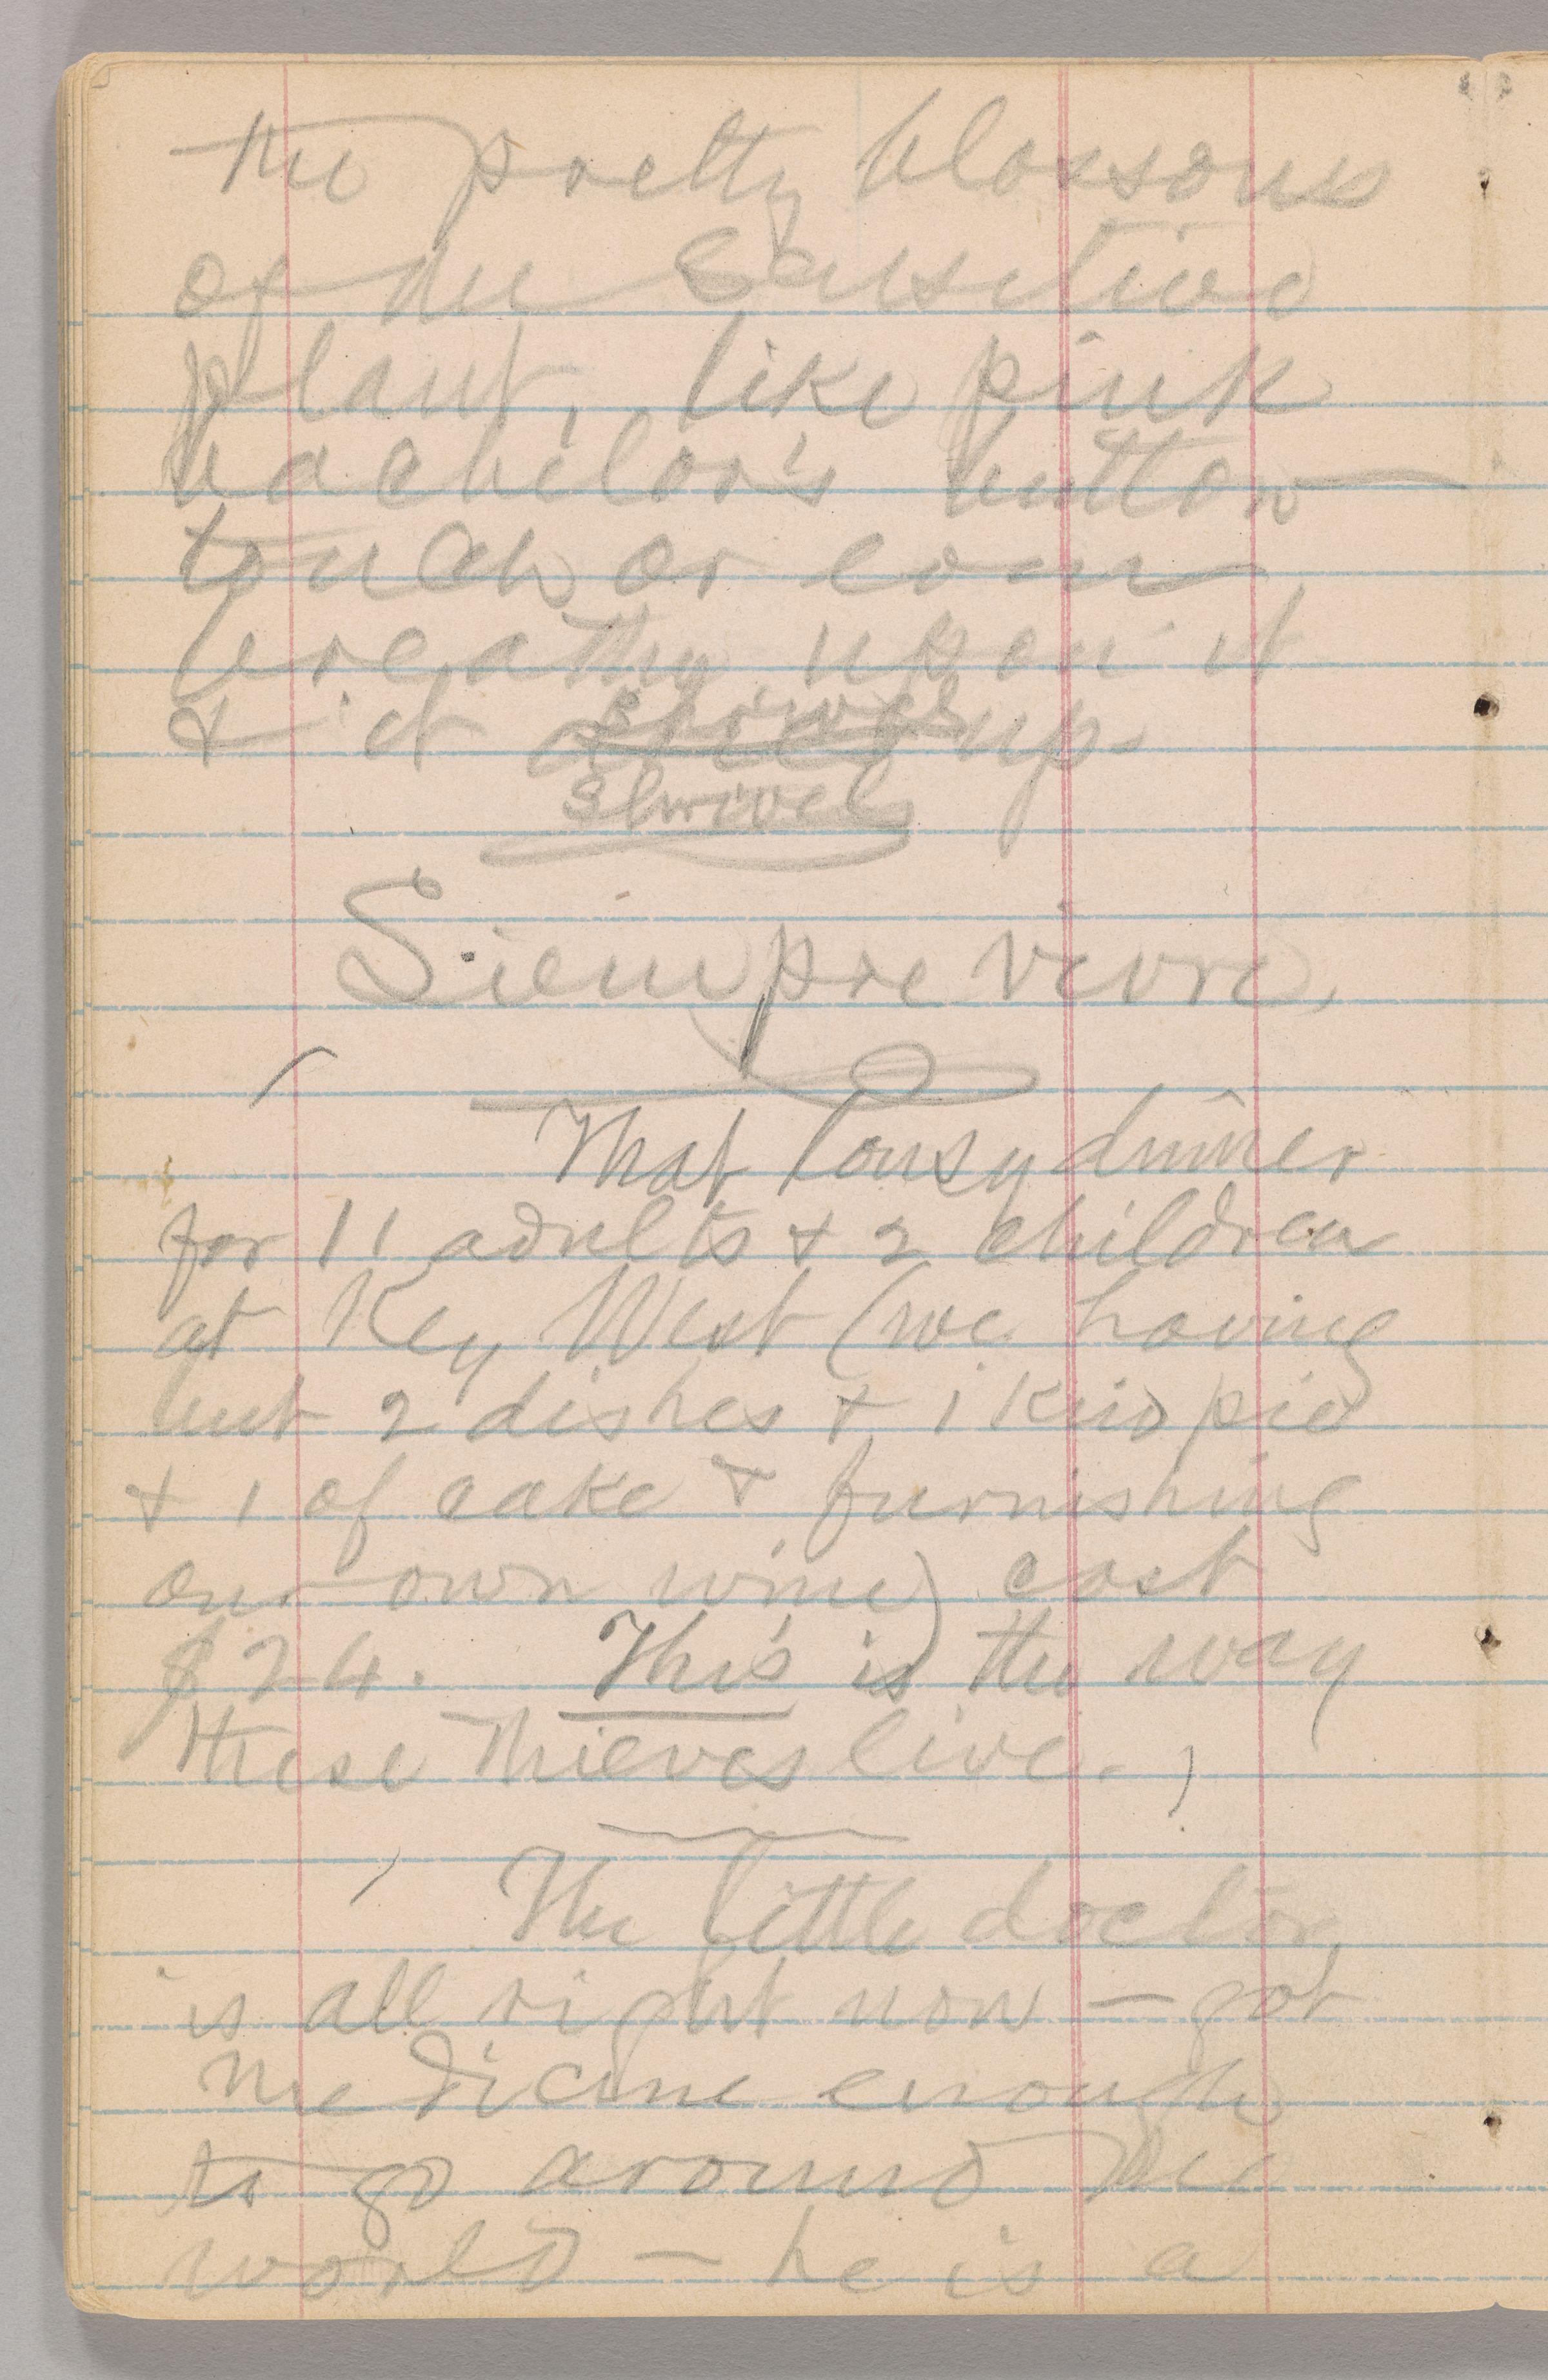 the pretty blossoms
of the Sensitive
plant, like pink
bachelor's button—
touch or even
breathe upon it
& it shrivels up.
shrivels
Siempre vivre,
That lousy dinner
for 11 adults & 2 children
at Key West (we having
but 2 dishes & 1 kind pie
& 1 of cake & furnishing
our own wine) cost
$24. This is the way
these thieves live.
The little doctor
is all right now — got
medicine enough
to go around the
world — he is a